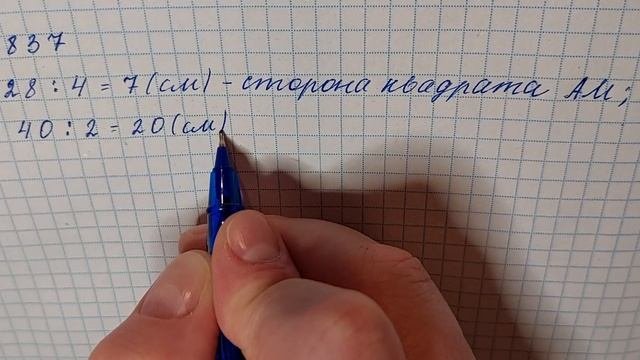 837
28 : 4 = 7 (см) - сторона квадрата АМ;
40 : 2 = 20 (см)